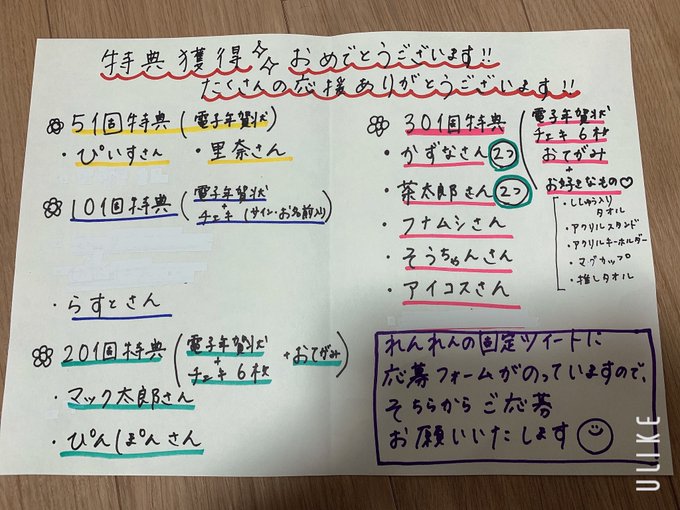 特典獲得 おめでとうございます!!
たくさんの応援ありがとうございます!!
5個特典(電子年賀状)
・ぴいすさん ・里奈さん
10個特典(電子年賀状
+
チェキ(サイン・お名前入り)
・らすとさん
20個特典(電子年賀状
+
チェキ6枚
+おてがみ)
・マック太郎さん
・ぴんぽんさん
30個特典
・かずなさん 2つ
・茶太郎さん 2つ
・フナムシさん
・そうちゃんさん
・アイコスさん
電子年賀状
チェキ6枚
おてがみ
+
お好きなもの♡
・ししゅう入り
タオル
・アクリルスタンド
・アクリルキーホルダー
・マグカップ
・推しタオル
れんれんの固定ツイートに
応募フォームがのっていますので、
そちらからご応募
お願いいたします
ULIKE